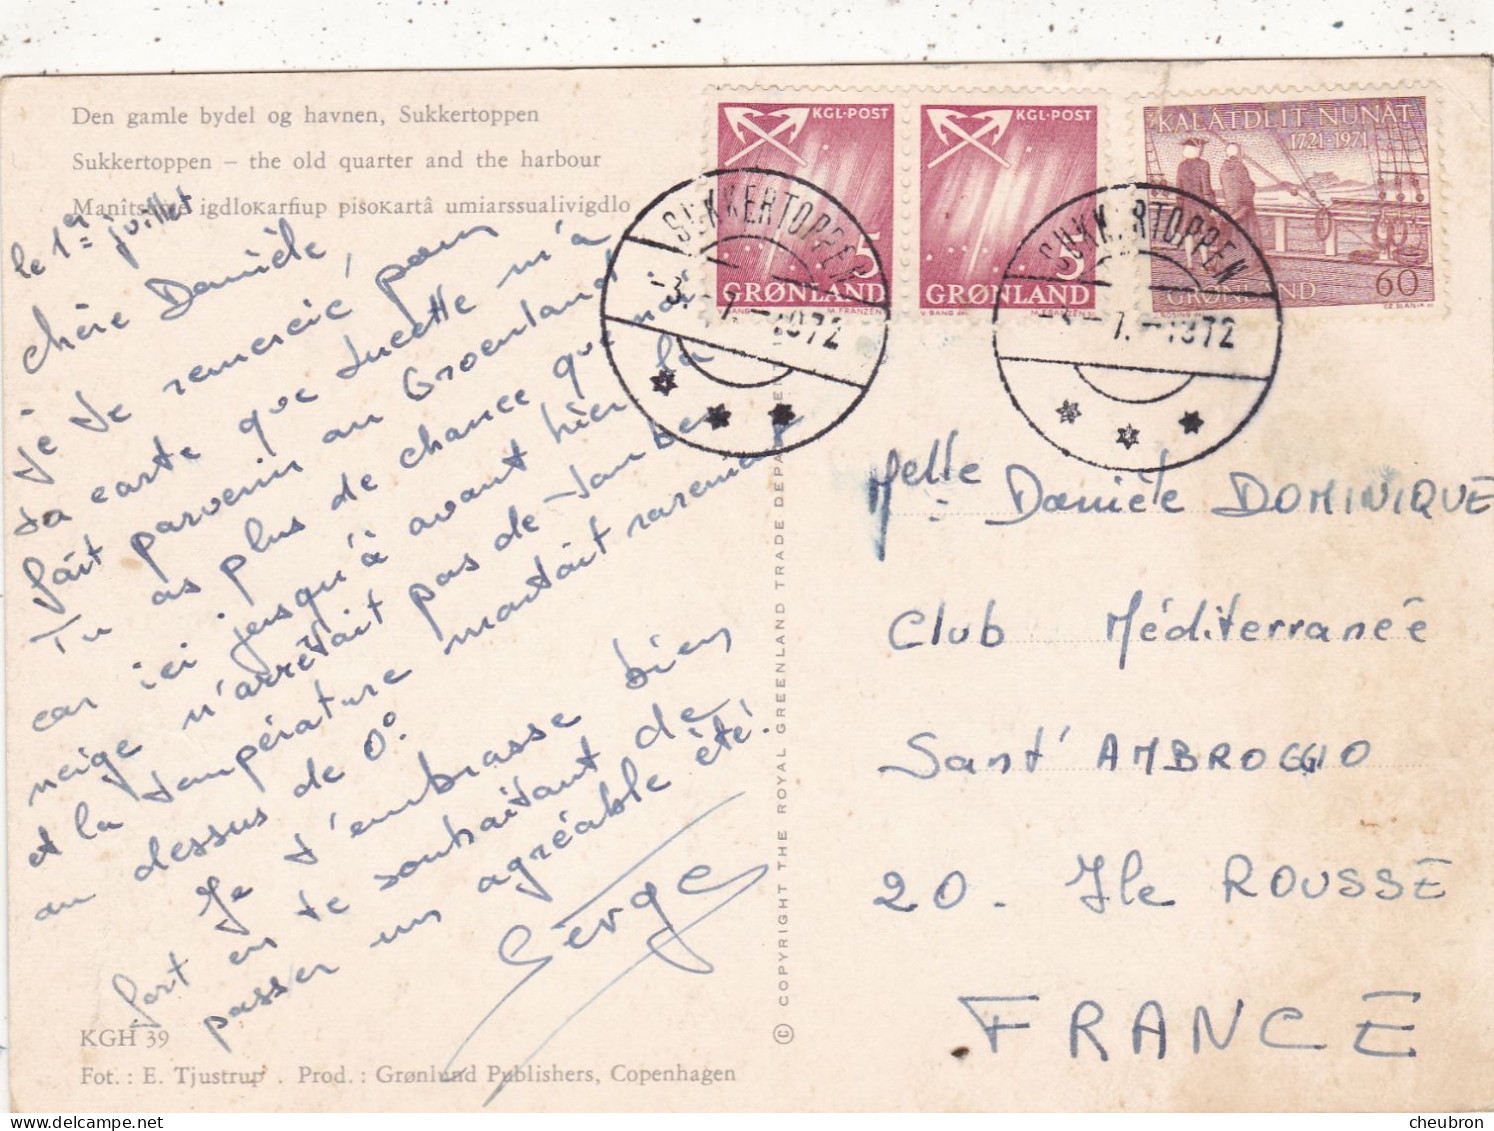 Den gamle bydel og havnen, Sukkertoppen
Sukkertoppen – the old quarter and the harbour
igdloĸarfiup pisoĸartâ umiarssualivigdlo
le 1er juillet
Chère Danièle,
Je te remercie pour
ta carte que Lucette m'a
fait parvenir au Groenland
Tu as plus de chance que moi
car ici jusqu'à avant hier la
neige n'arrêtait pas de tomber
et la température montait rarement
au dessus de 0°.
Je t'embrasse bien
fort en te souhaitant de
passer un agréable été.
Serge
KGH 39
Fot.: E. Tjustrup. Prod.: Grønlund Publishers, Copenhagen
© COPYRIGHT THE ROYAL GREENLAND TRADE DEPARTMENT
KGL·POST
5
GRØNLAND
V. BANG M. FRANZÉN
KGL·POST
5
GRØNLAND
V. BANG M. FRANZÉN
KALÂTDLIT NUNÂT
1721-1971
GRØNLAND 60
CZ. SLANIA
SUKKERTOPPEN
-3.-7.-1972
SUKKERTOPPEN
-3.-7.-1972
Melle Danièle DOMINIQUE
Club Méditerranée
Sant' AMBROGGIO
20. Ile ROUSSE
FRANCE
delcampe.net
cheubron